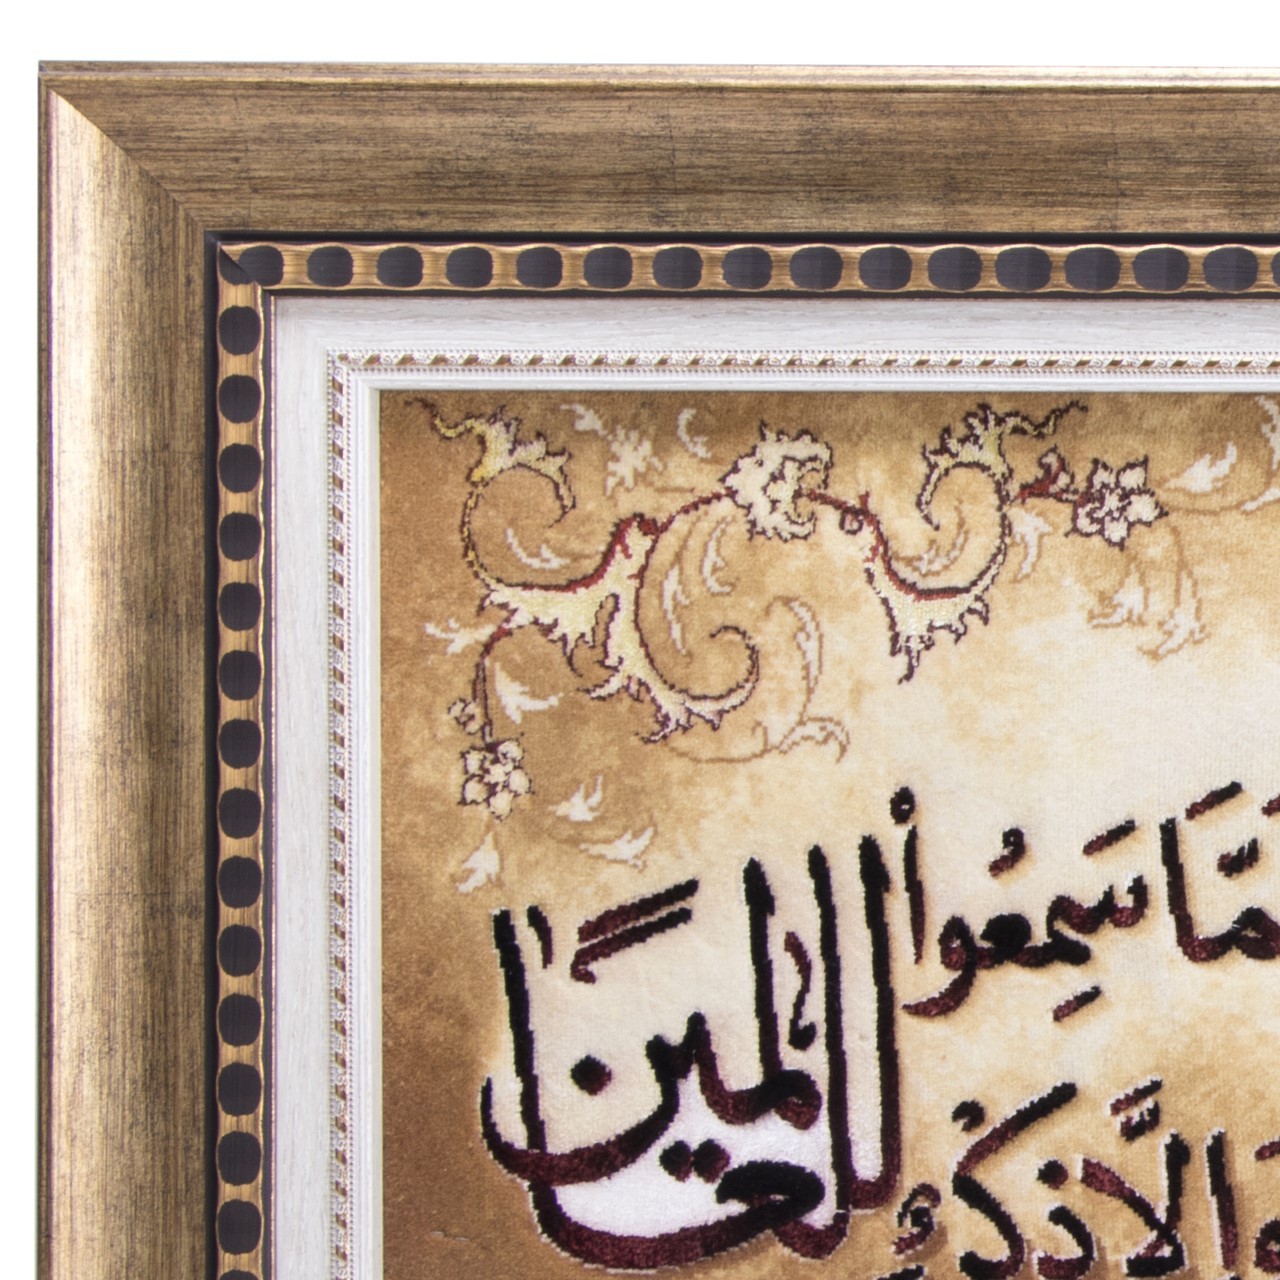 لَمَّا سَمِعُوا
إِلَّا ذِكْرٌ
لِلْعَالَمِينَ